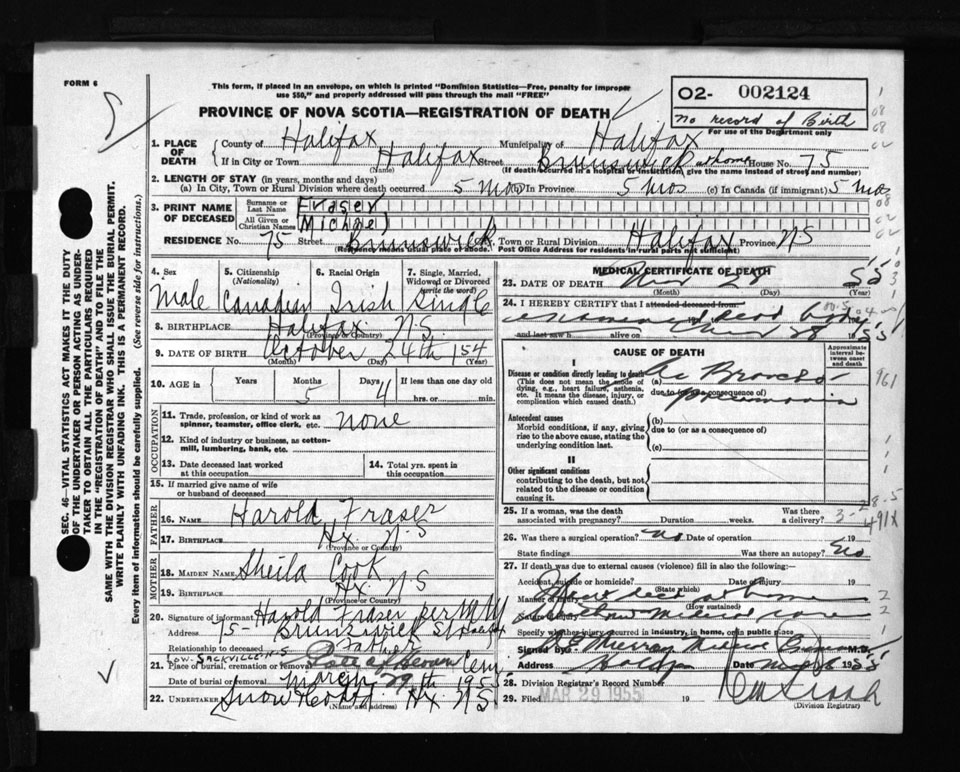 FORM 6
This form, if placed in an envelope, on which is printed "Dominion Statistics—Free, penalty for improper
use $50," and properly addressed will pass through the mail "FREE"
PROVINCE OF NOVA SCOTIA—REGISTRATION OF DEATH
O2- 002124
no record of Birth
For use of the Department only
1. PLACE OF DEATH
County of Halifax Municipality of Halifax
If in City or Town Halifax Street Brunswick at home House No. 75
(Name) (If death occurred in a hospital or institution, give the name instead of street and number)
2. LENGTH OF STAY (in years, months and days)
(a) In City, Town or Rural Division where death occurred 5 mos (b) In Province 5 mos (c) In Canada (if immigrant) 5 mos
3. PRINT NAME OF DECEASED
Surname or Last Name Fraser
All Given or Christian Names Michael
RESIDENCE No. 75 Street Brunswick City, Town or Rural Division Halifax Province NS
(Residence means usual place of abode. Post Office Address for residents in rural parts not sufficient)
4. Sex Male
5. Citizenship (Nationality) Canadian
6. Racial Origin Irish
7. Single, Married, Widowed or Divorced (write the word) Single
8. BIRTHPLACE Halifax N.S.
(Province or Country)
9. DATE OF BIRTH October 24th 1954
(Month) (Day) (Year)
10. AGE in Years Months 5 Days 4 If less than one day old
hrs. or min.
OCCUPATION
11. Trade, profession, or kind of work as
spinner, teamster, office clerk, etc. none
12. Kind of industry or business, as cotton-
mill, lumbering, bank, etc.
13. Date deceased last worked
at this occupation
14. Total yrs. spent in
this occupation
15. If married give name of wife
or husband of deceased
FATHER
16. NAME Harold Fraser
17. BIRTHPLACE Hx N S
(Province or Country)
MOTHER
18. MAIDEN NAME Sheila Cook
19. BIRTHPLACE Hx N S
(Province or Country)
20. Signature of informant Harold Fraser per
Address 75- Brunswick St Halifax
Relationship to deceased Father
LOW. SACKVILLE N.S
21. Place of burial, cremation or removal Gate of Heaven Cem.
Date of burial or removal March 29th 1955
22. UNDERTAKER Snow Hx N.S.
(Name and address)
MEDICAL CERTIFICATE OF DEATH
23. DATE OF DEATH 28 55
(Month) (Day) (Year)
24. I HEREBY CERTIFY that I attended deceased from:
examined dead body
and last saw h alive on 28 1955
CAUSE OF DEATH
Approximate interval between onset and death
I
Disease or condition directly leading to death
(This does not mean the mode of
dying, e.g., heart failure, asthenia,
etc. It means the disease, injury, or
complication which caused death.)
(a) Ac Broncho
due to (or as a consequence of)
pneumonia
Antecedent causes
Morbid conditions, if any, giving
rise to the above cause, stating the
underlying condition last.
(b)
due to (or as a consequence of)
(c)
II
Other significant conditions
contributing to the death, but not
related to the disease or condition
causing it.
25. If a woman, was the death
associated with pregnancy? Duration weeks. Was there a delivery?
3-28-5
491X
26. Was there a surgical operation? no Date of operation 19
State findings Was there an autopsy? no
27. If death was due to external causes (violence) fill in also the following:
Accident, suicide or homicide? Date of injury 19
(State which)
Manner of injury
(How sustained)
Specify whether injury occurred in industry, in home, or in public place
Signed by Murray M.D.
Address Halifax Date 1955
28. Division Registrar's Record Number
29. Filed MAR 29 1955
(Division Registrar)
SEC. 46—VITAL STATISTICS ACT MAKES IT THE DUTY
OF THE UNDERTAKER OR PERSON ACTING AS UNDER-
TAKER TO OBTAIN ALL THE PARTICULARS REQUIRED
IN THE "REGISTRATION OF DEATH" AND TO FILE THE
SAME WITH THE DIVISION REGISTRAR WHO SHALL ISSUE THE BURIAL PERMIT.
WRITE PLAINLY WITH UNFADING INK. THIS IS A PERMANENT RECORD.
Every item of information should be carefully supplied. (See reverse side for instructions.)